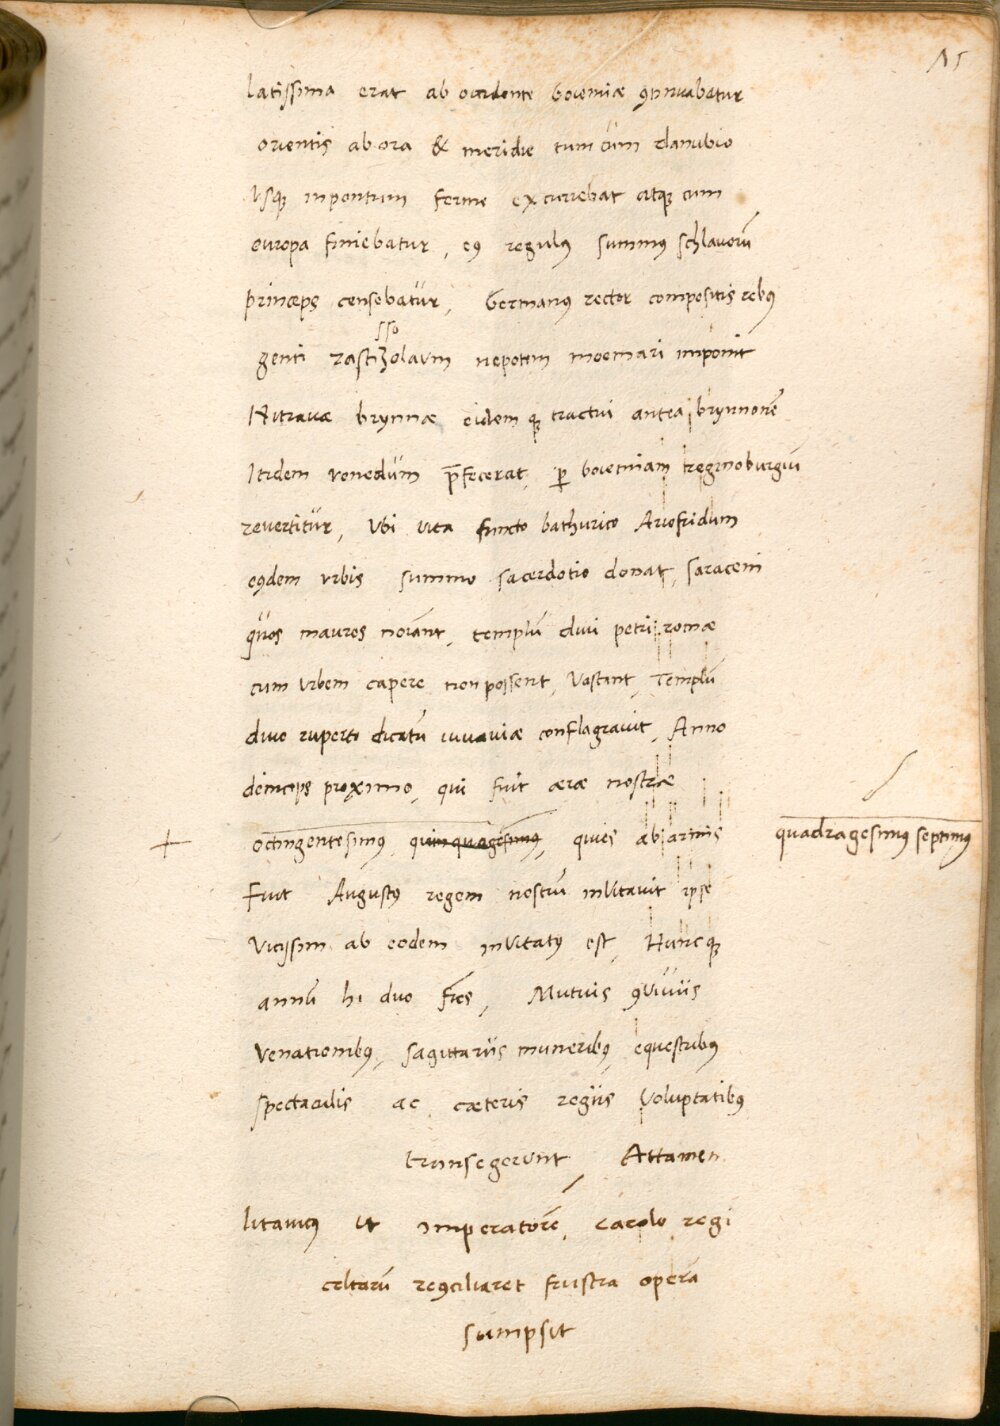 15
latissima erat ab occidente boiemiæ ꝯtinuabatur
orientis ab ora & meridie tum cum danubio
usqꝫ in pontum ferme excurrebat atqꝫ cum
europa finiebatur, eꝰ regulꝰ summꝰ schlavorū
princeps censebatur, Germanꝰ rector compositis rebꝰ
sso
genti rastizolaum nepotem moemari imponit
Nitravæ brynnæ eidem qꝫ tractui antea brynnonē
Itidem venedum p̄fecerat, ꝑ boiemiam reginoburgiū
revertitur, Ubi vita functo bathurico Ariofridum
eꝰdem urbis summo sacerdotio donat, saraceni
quos mauros norant, templū divi petri romæ
cum urbem capere non possent, vastant, Templū
divo ruperto dicatū iuvaviæ conflagravit, Anno
deinceps proximo, qui fuit æræ nostræ
octingentesimꝰ quinquagesimꝰ, quies ab armis quadragesimꝰ septimꝰ
Fuit Augustꝰ regem nostrū invitavit ipse
vicissim ab eodem invitatꝰ est, Hunc qꝫ
annū hi duo fr̄es, Mutuis ꝯviviis
venationibꝰ, sagittariis muneribꝰ, equestribꝰ
spectaculis ac cæteris regiis voluptatibꝰ
transegerunt, Attamen
litavicꝰ ut imperatorē, carolo regi
celtarū reꝯciliaret frustra operā
sumpsit